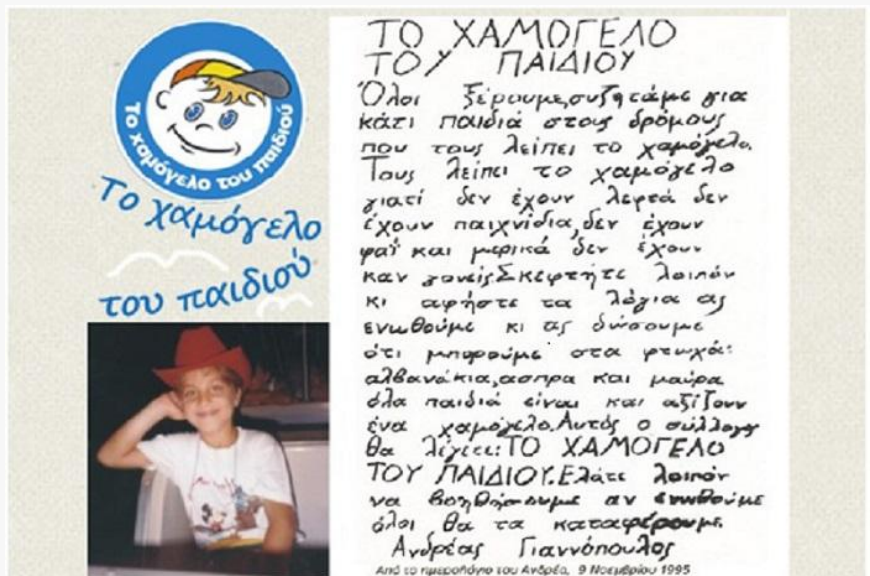 Το χαμόγελο του παιδιού
Το χαμόγελο
του παιδιού
ΤΟ ΧΑΜΟΓΕΛΟ
ΤΟΥ ΠΑΙΔΙΟΥ
Όλοι ξέρουμε,συζητάμε για
κάτι παιδιά στους δρόμους
που τους λείπει το χαμόγελο.
Τους λείπει το χαμόγελο
γιατί δεν έχουν λεφτά δεν
έχουν παιχνίδια,δεν έχουν
φαΐ και μερικά δεν έχουν
καν γονείς.Σκεφτήτε λοιπόν
κι αφήστε τα λόγια ας
ενωθούμε κι ας δώσουμε
ότι μπορούμε στα φτωχά:
αλβανάκια,ασπρα και μαύρα
όλα παιδιά είναι και αξίζουν
ένα χαμόγελο.Αυτός ο σύλλογος
θα λέγετε:ΤΟ ΧΑΜΟΓΕΛΟ
ΤΟΥ ΠΑΙΔΙΟΥ.Ελάτε λοιπόν
να βοηθήσουμε αν ενωθούμε
όλοι θα τα καταφέρουμε.
Ανδρέας Γιαννόπουλος
Από το ημερολόγιο του Ανδρέα, 9 Νοεμβρίου 1995